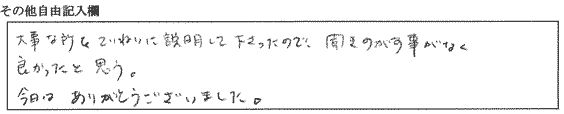 その他自由記入欄
大事な所をていねいに説明して下さったので、聞きのがす事がなく
良かったと思う。
今日は ありがとうございました。